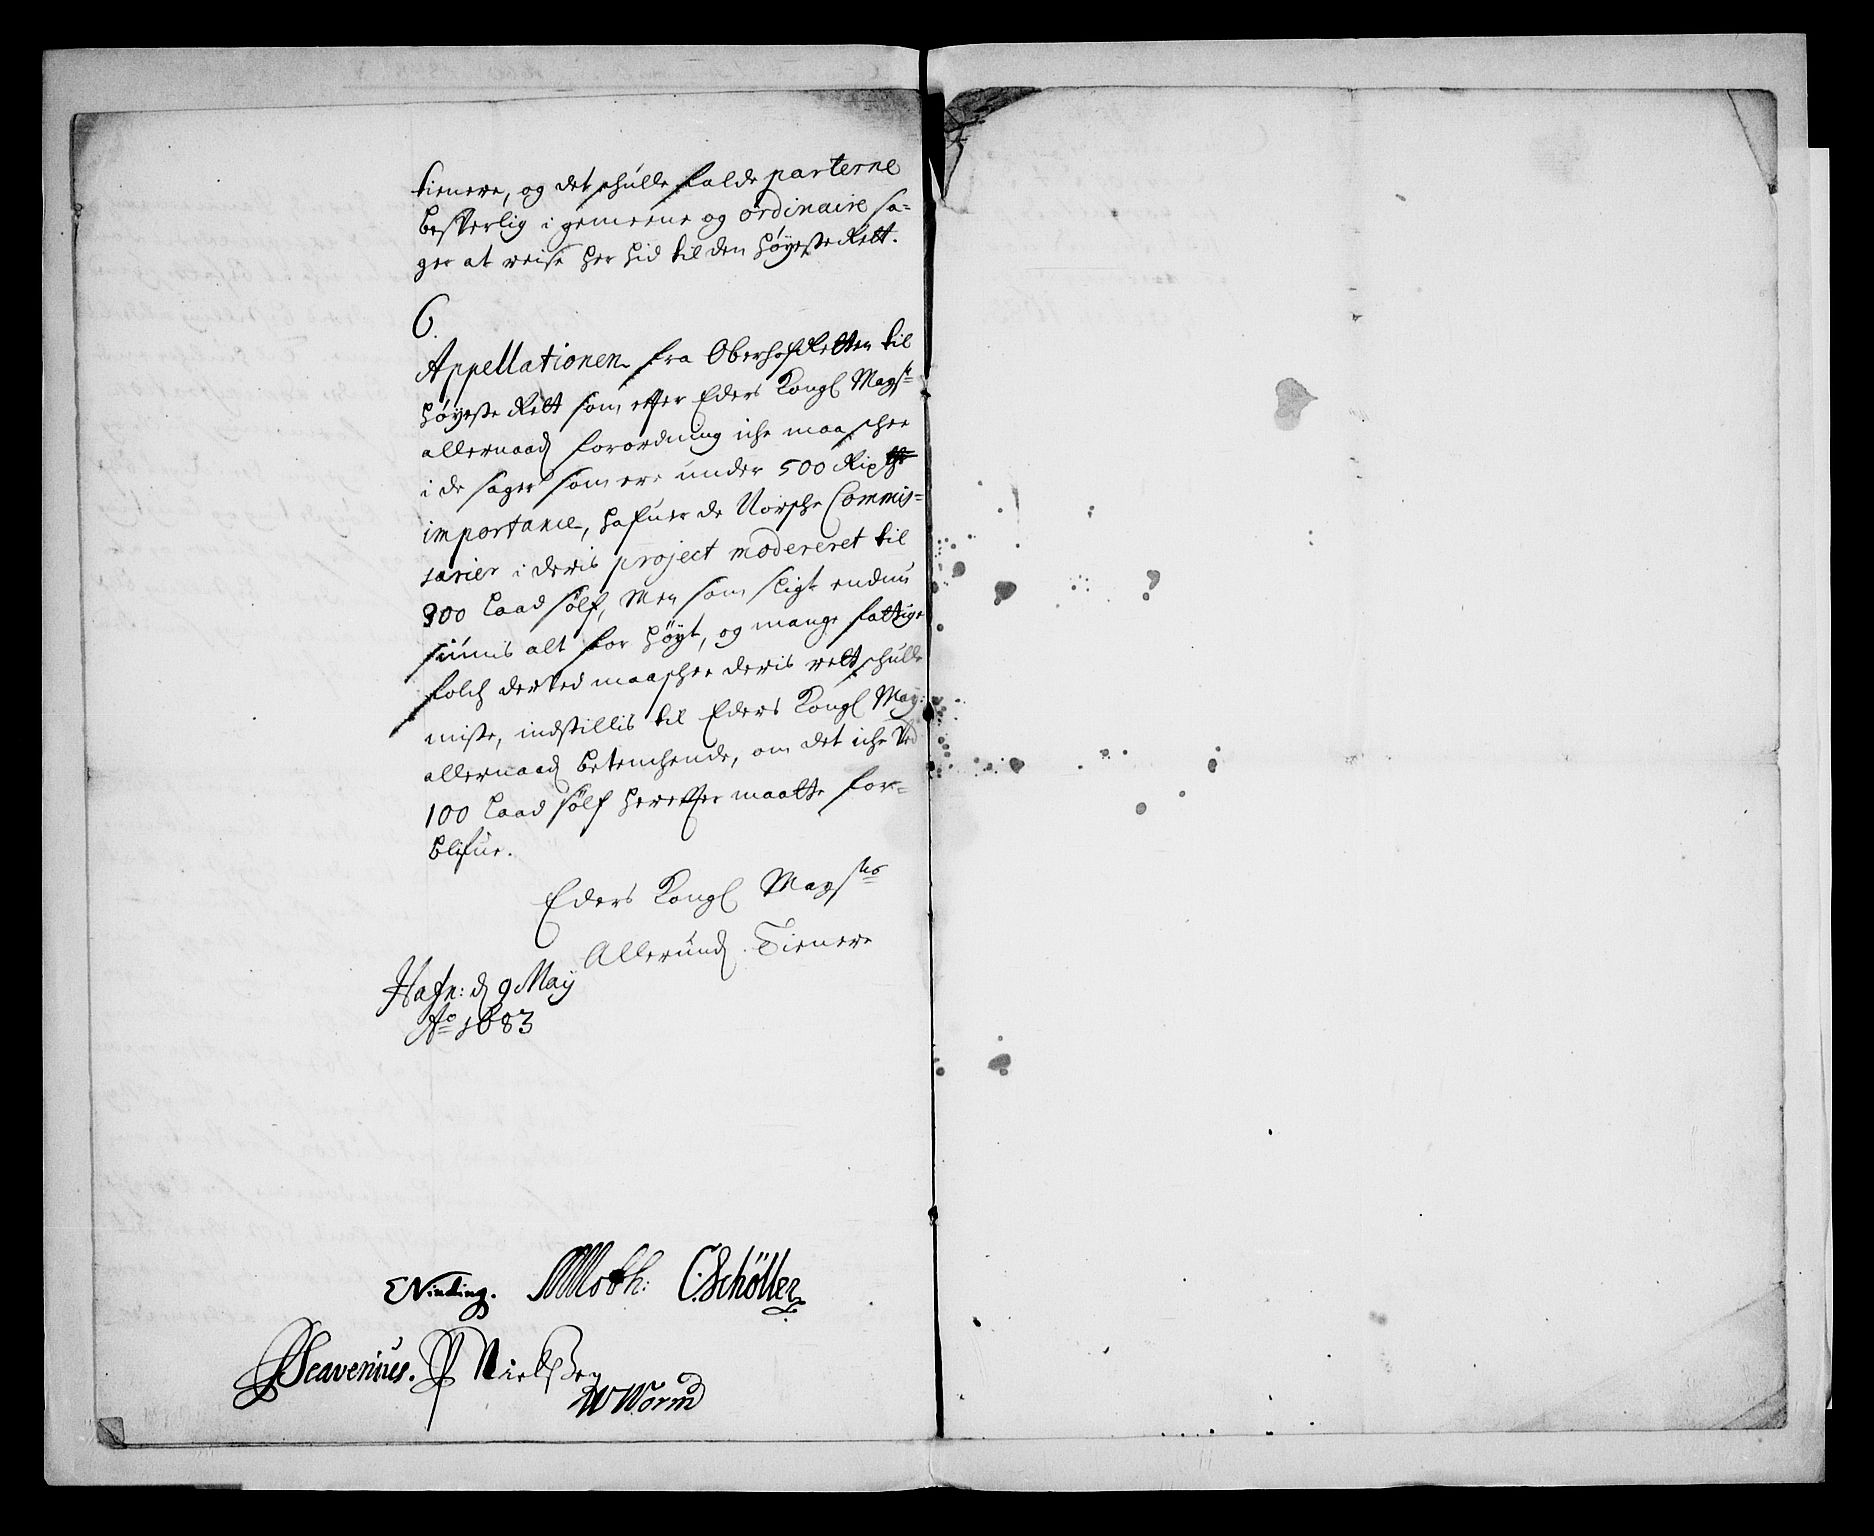 tienere, og det schulle falde parterne
besverlig i gemeene og ordinaire sa=
ger at reise her hid til den høyeste Rett.
6.
Appellationen fra OberhofRetten til
høyeste Rett som efter Eders Kongl Mayst
allernaad forordning iche maa schee
i de sager som ere under 500 Rix
importance, hafuer de Norsche Commis=
sarier i deris project modereret til
300 Laad sølf, Men som sligt endnu
siunis alt for høyt, og mange fattige
folch derved maaschee deris rett schulle
miste, indstillis til Eders Kongl May:
allernaad betenchende, om det iche ved
100 Laad sølf herefter maatte for=
blifue.
Eders Kongl Mayst
Allerund. Tienere
Hafn: d 9 May
Ao 1683
EVinding. MMoth: C:Schöller
PScavenius. P Nielsßen
WWorm